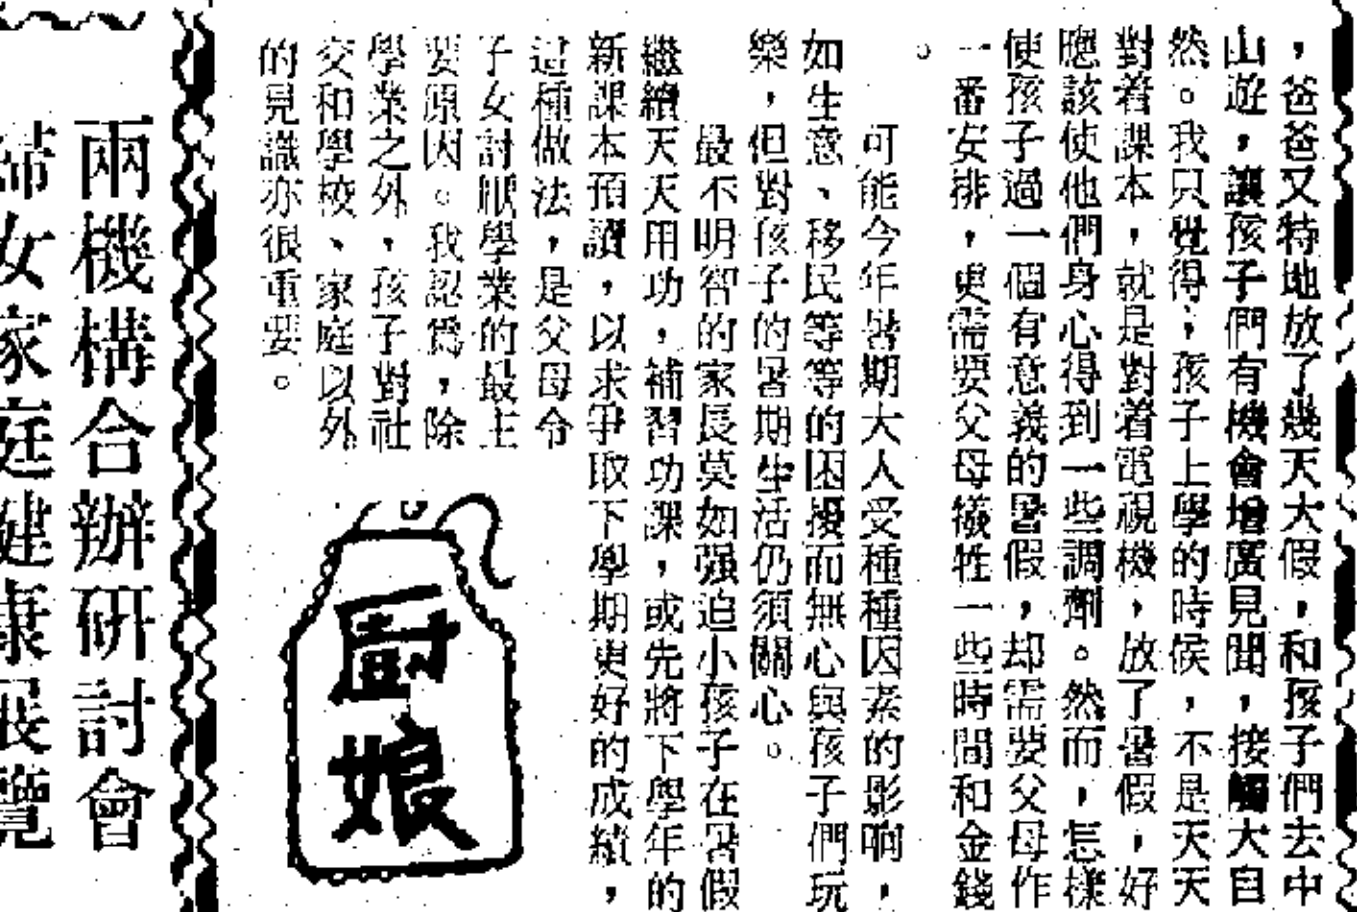 ，爸爸又特地放了幾天大假，和孩子們去中
山遊，讓孩子們有機會增廣見聞，接觸大自
然。我只覺得，孩子上學的時候，不是天天
對着課本，就是對着電視機，放了暑假，好
應該使他們身心得到一些調劑。然而，怎樣
使孩子過一個有意義的暑假，却需要父母作
一番安排，更需要父母犧牲一些時間和金錢
。
可能今年暑期大人受種種因素的影响，
如生意、移民等等的困擾而無心與孩子們玩
樂，但對孩子的暑期生活仍須關心。
最不明智的家長莫如强迫小孩子在暑假
繼續天天用功，補習功課，或先將下學年的
新課本預讀，以求爭取下學期更好的成績，
這種做法，是父母令
子女討厭學業的最主
要原因。我認爲，除
學業之外，孩子對社
交和學校、家庭以外
的見識亦很重要。
廚娘
兩機構合辦研討會
婦女家庭健康展覽